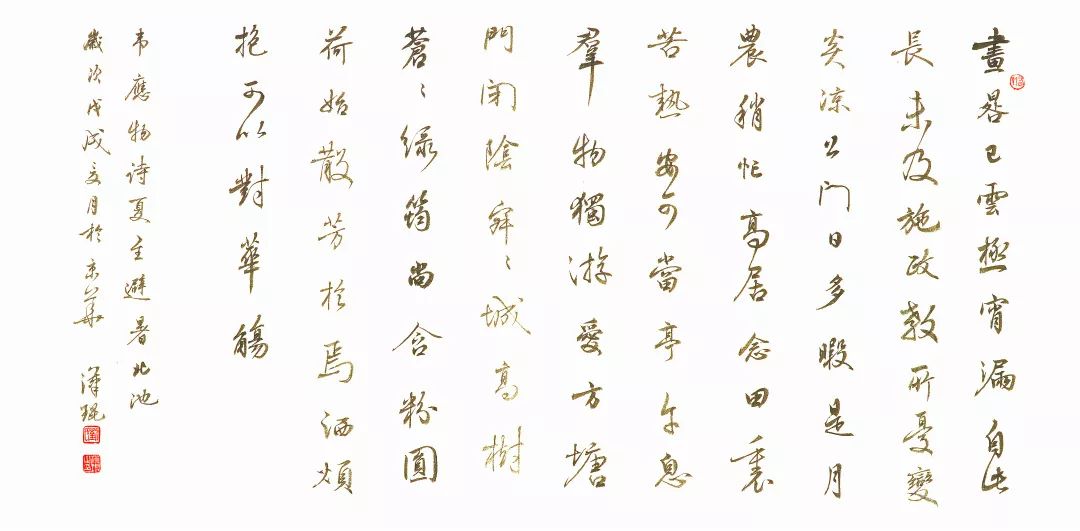 畫晷已雲極宵漏自此
長未及施政教所憂變
炎凉公门日多暇是月
農稍忙高居念田裏
苦熱安可當亭午息
羣物獨游愛方塘
門闭陰寂〻城高樹
蒼〻緑筠尚含粉圓
荷始散芳於焉洒煩
抱可以對華觴
韦應物诗夏至避暑北池
歲次戊戌月於京華